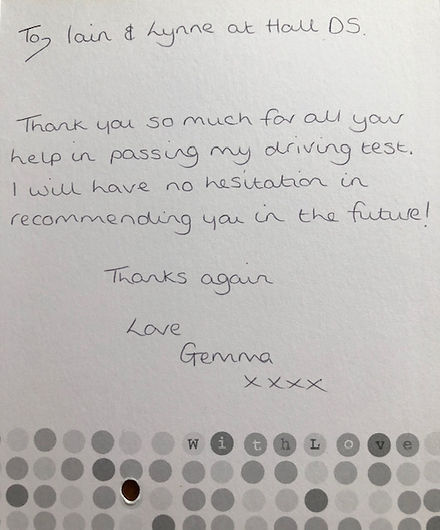 To, Iain & Lynne at Hall DS.
Thank you so much for all your
help in passing my driving test.
I will have no hesitation in
recommending you in the future!
Thanks again
Love
Gemma
xxxx
With Love